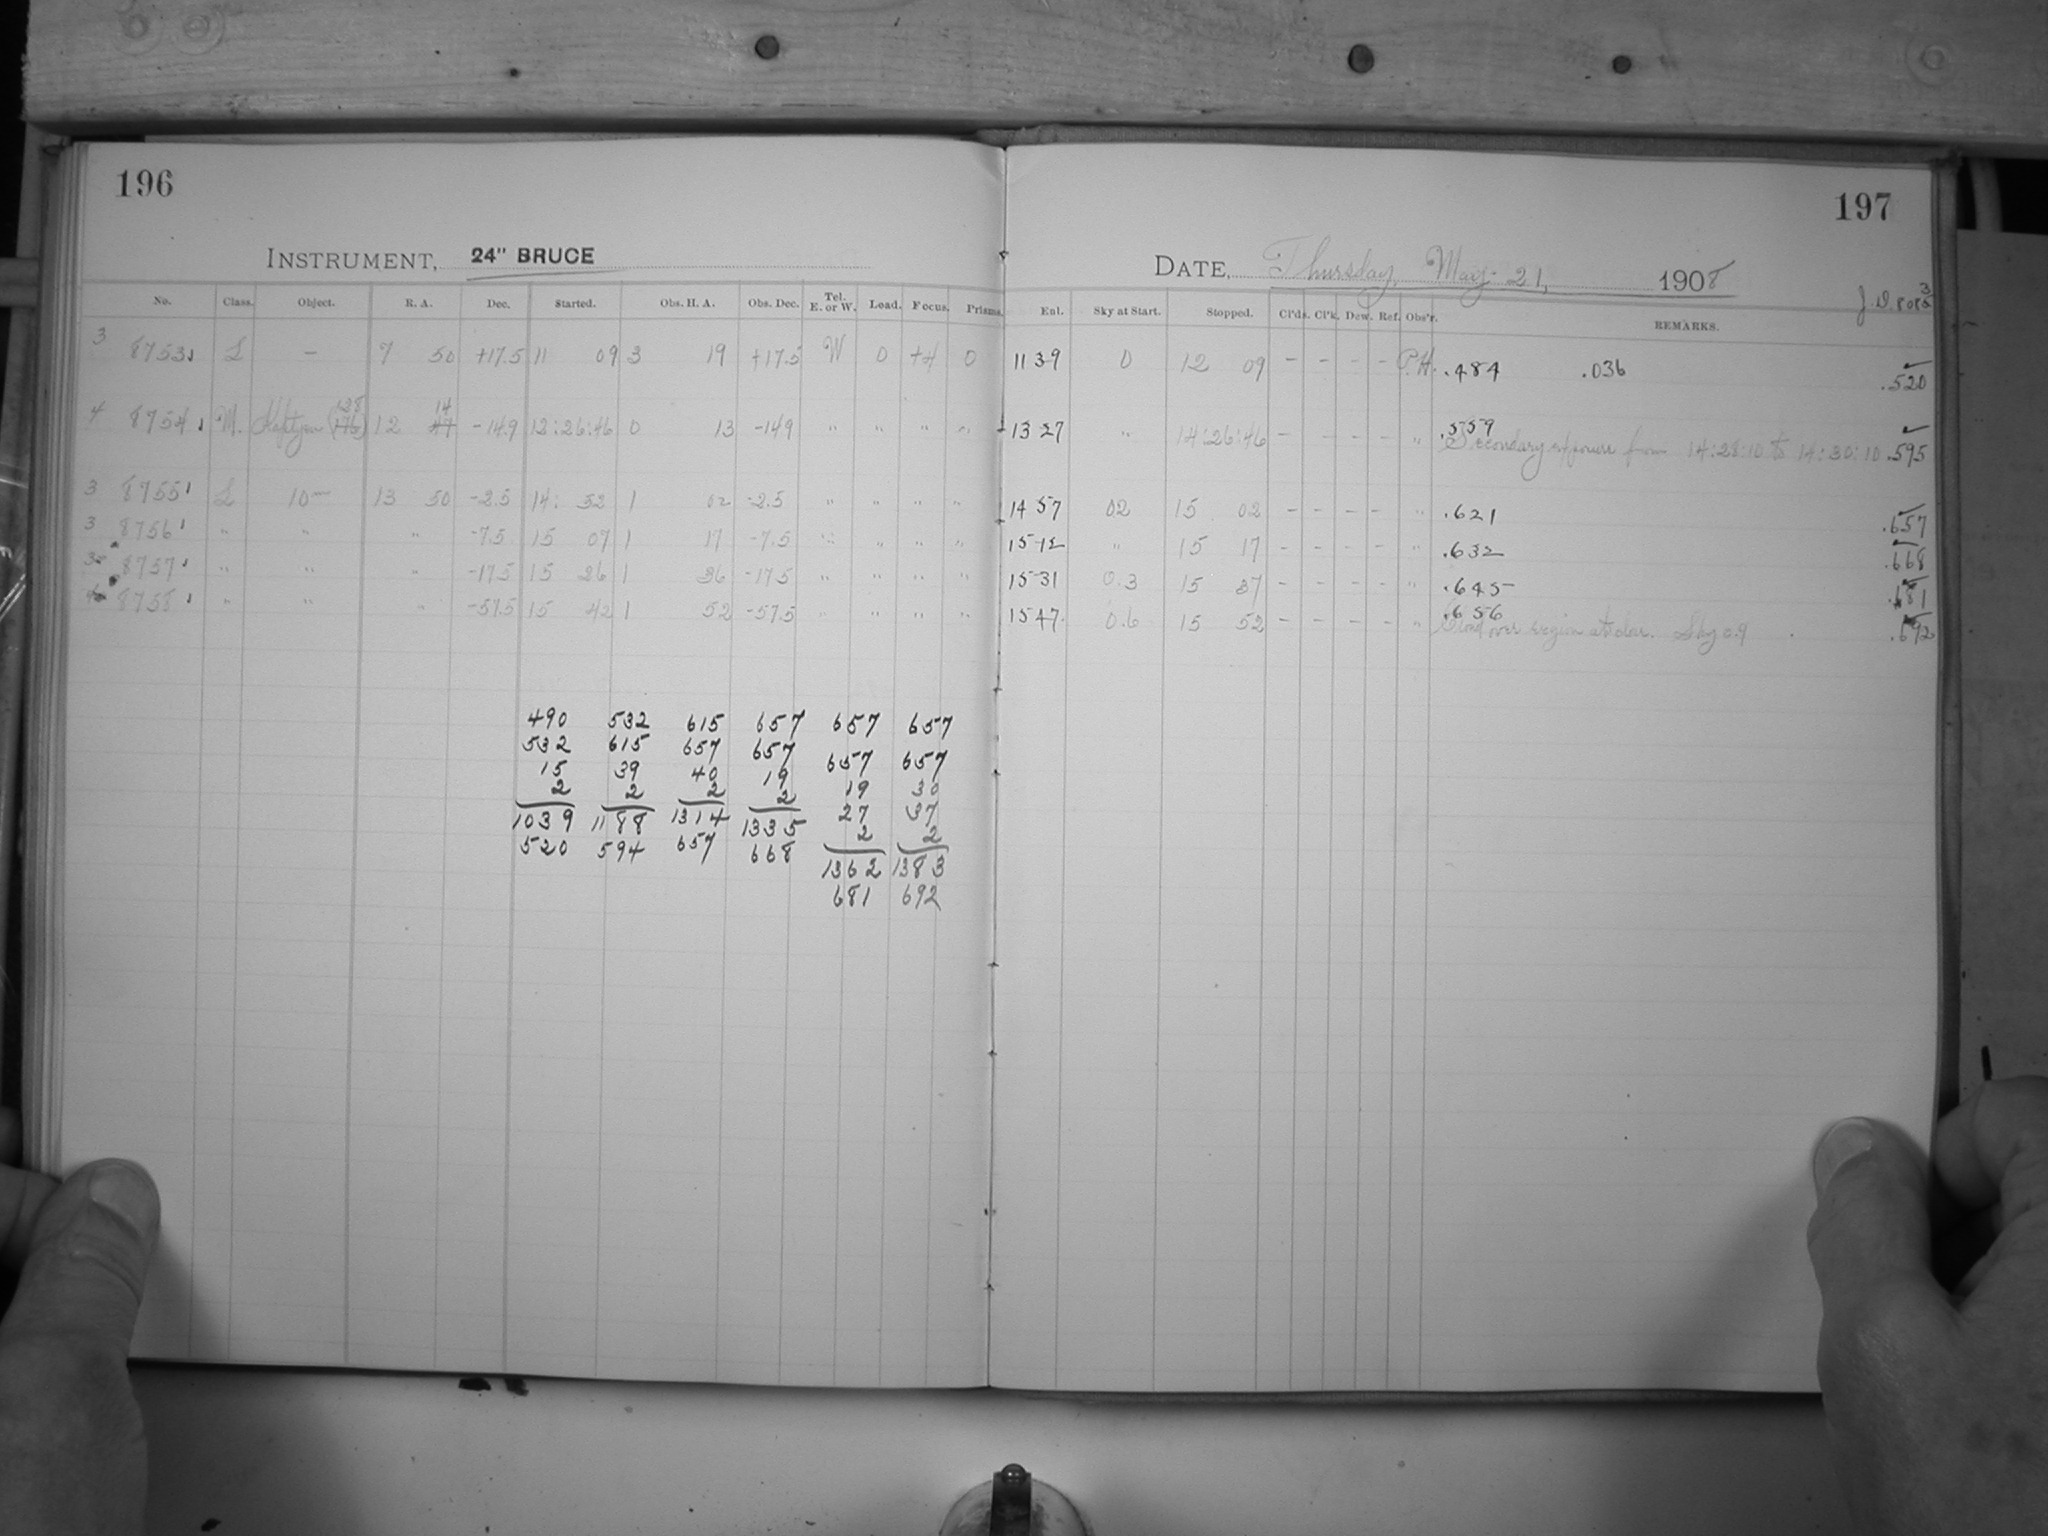 196
197
INSTRUMENT, 24" BRUCE
DATE, Thursday, May 21, 1908
No. Class. Object. R. A. Dec. Started. Obs. H. A. Obs. Dec. Tel. E. or W. Load. Focus. Prisms. Enl. Sky at Start. Stopped. Cl'ds. Cl'k. Dew. Ref. Obs'r. REMARKS.
3 8753 L — 7 50 +17.5 11 09 3 19 +17.5 W 0 +4 0 11 39 0 12 09 - - - - P.H. .484 .036 .520
128 14 .559
4 8754 M. Kapteyn (176) 12 47 -14.9 12:26:46 0 13 -14.9 " " " " 13 27 " 14:26:46 - - - - " Secondary exposure from 14:28:10 to 14:30:10 .595
3 8755 L 10m 13 50 -2.5 14: 52 1 02 -2.5 " " " " 14 57 02 15 02 - - - - " .621 .657
3 8756 " " " -7.5 15 07 1 17 -7.5 " " " " 15 12 " 15 17 - - - - " .632 .668
8757 " " " -17.5 15 26 1 36 -17.5 " " " " 15 31 0.3 15 37 - - - - " .645 .681
.656
8758 " " " -57.5 15 42 1 52 -57.5 " " " " 15 47 0.6 15 52 - - - - " over region at Sky 0.9 .692
490 532 615 657 657 657
532 615 657 657 657 657
15 39 40 19 19 30
2 2 2 2 27 37
1039 1188 1314 1335 2 2
520 594 657 668 1362 1383
681 692